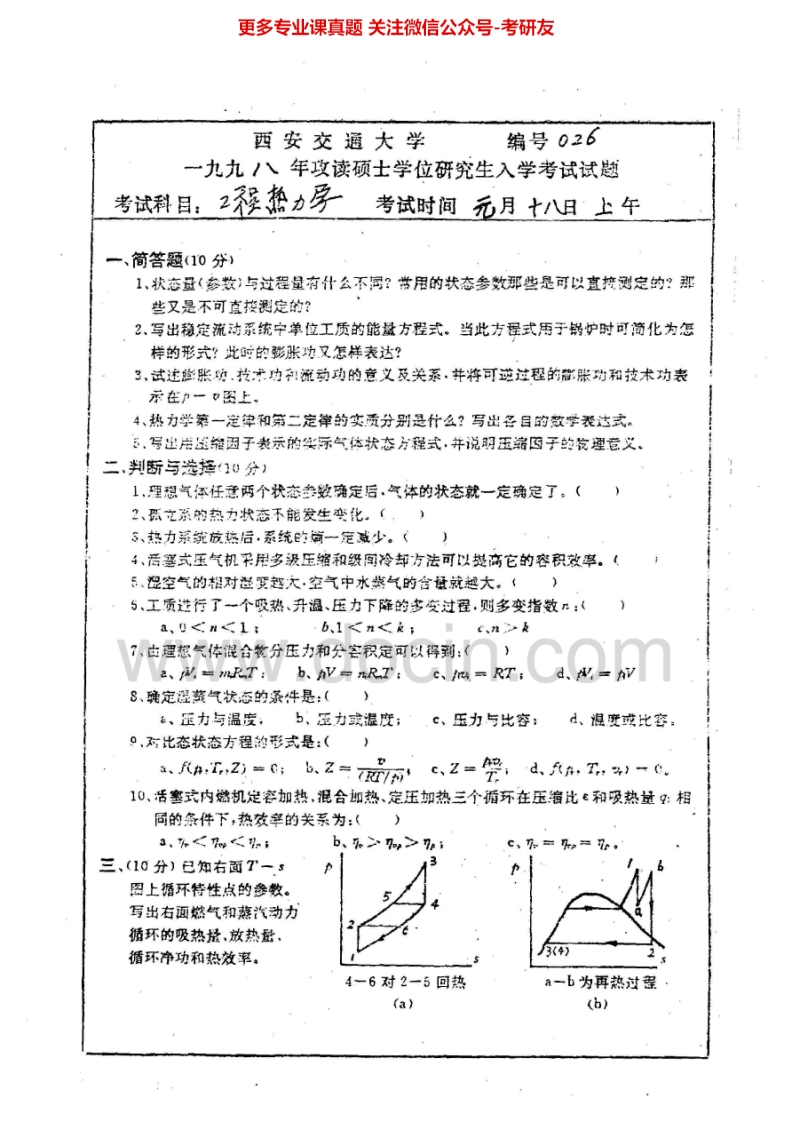 更多专业课真题 关注微信公众号-考研友
西安交通大学 编号 026
一九九八年攻读硕士学位研究生入学考试试题
考试科目：工程热力学 考试时间 元月十八日 上午
一、简答题(10 分)
1、状态量(参数)与过程量有什么不同? 常用的状态参数那些是可以直接测定的? 那
些又是不可直接测定的?
2、写出稳定流动系统中单位工质的能量方程式。当此方程式用于锅炉时可简化为怎
样的形式? 此时的膨胀功又怎样表达?
3、试述膨胀功、技术功和流动功的意义及关系,并将可逆过程的膨胀功和技术功表
示在 p－v 图上。
4、热力学第一定律和第二定律的实质分别是什么? 写出各自的数学表达式。
5、写出用压缩因子表示的实际气体状态方程式,并说明压缩因子的物理意义。
二、判断与选择(10 分)
1、理想气体任意两个状态参数确定后,气体的状态就一定确定了。( )
2、孤立系的热力状态不能发生变化。( )
3、热力系统放热后,系统的熵一定减少。( )
4、活塞式压气机采用多级压缩和级间冷却方法可以提高它的容积效率。( )
5、湿空气的相对湿度越大,空气中水蒸气的含量就越大。( )
6、工质进行了一个吸热、升温、压力下降的多变过程,则多变指数 n:( )
a、0＜n＜1; b、1＜n＜k; c、n＞k
7、由理想气体混合物分压力和分容积定可以得到:( )
a、pVᵢ = mRᵢT; b、pV = nRᵢT; d、pVᵢ = pᵢV
8、确定湿蒸气状态的条件是:( )
a、压力与温度; b、压力或温度; c、压力与比容; d、温度或比容。
9、对比态状态方程的形式是:( )
a、f(pᵣ,Tᵣ,Z) = 0; b、Z = v/(RT/p); c、Z = pᵣvᵣ/Tᵣ; d、f(pᵣ, Tᵣ, vᵣ) = 0。
10、活塞式内燃机定容加热、混合加热、定压加热三个循环在压缩比 ε 和吸热量 q₁ 相
同的条件下,热效率的关系为:( )
a、ηᵥ＜ηᵥₚ＜ηₚ; b、ηᵥ＞ηᵥₚ＞ηₚ; c、ηᵥ = ηᵥₚ = ηₚ。
三、(10 分) 已知右面 T－s
图上循环特性点的参数。
写出右面燃气和蒸汽动力
循环的吸热量、放热量、
循环净功和热效率。
p 3 5 4 2 6 1 s
4－6 对 2－5 回热
(a)
p 1 b a 3(4) 2 s
a－b 为再热过程
(b)
www.docin.com